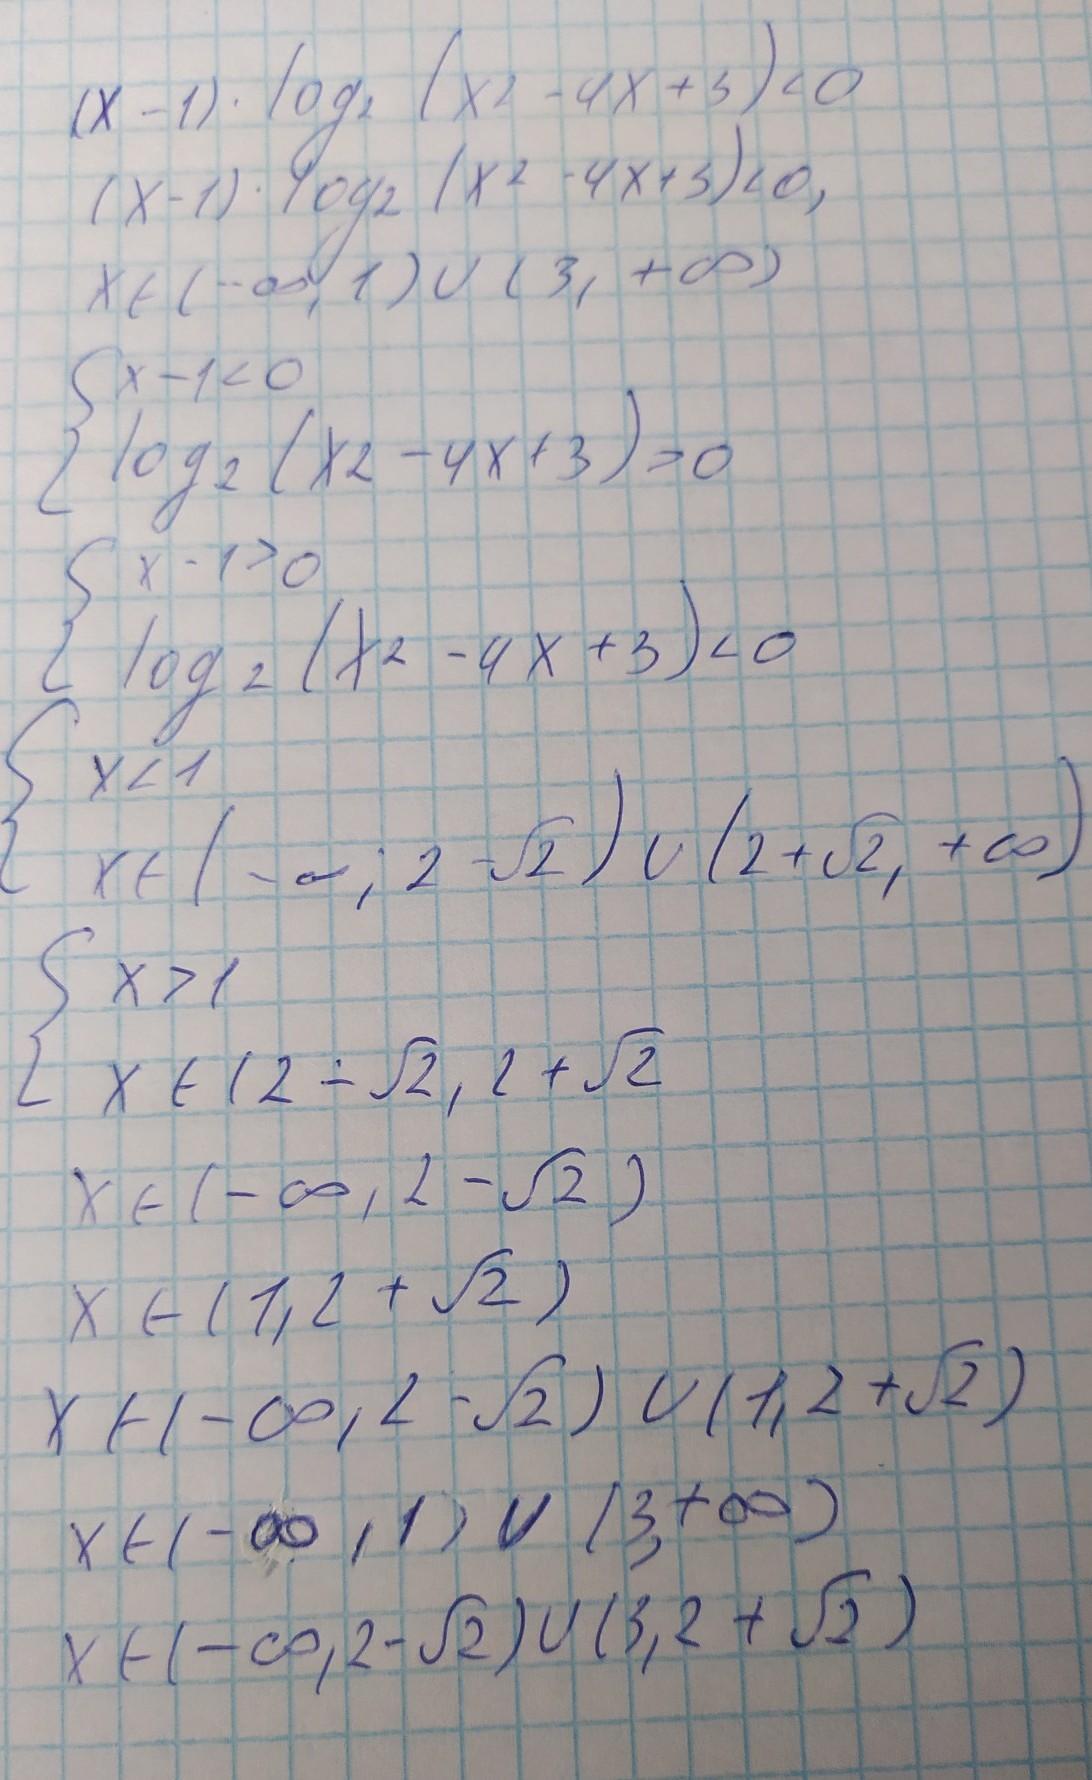 (x-1)·log₂(x²-4x+3)<0
(x-1)·log₂(x²-4x+3)<0,
x∈(-∞,1)∪(3,+∞)
{x-1<0
log₂(x2-4x+3)>0
{x-1>0
log₂(x²-4x+3)<0
{x<1
x∈(-∞;2-√2)∪(2+√2,+∞)
{x>1
x∈(2-√2,2+√2
x∈(-∞,2-√2)
x∈(1,2+√2)
x∈(-∞,2-√2)∪(1,2+√2)
x∈(-∞,1)∪(3,+∞)
x∈(-∞,2-√2)∪(3,2+√2)